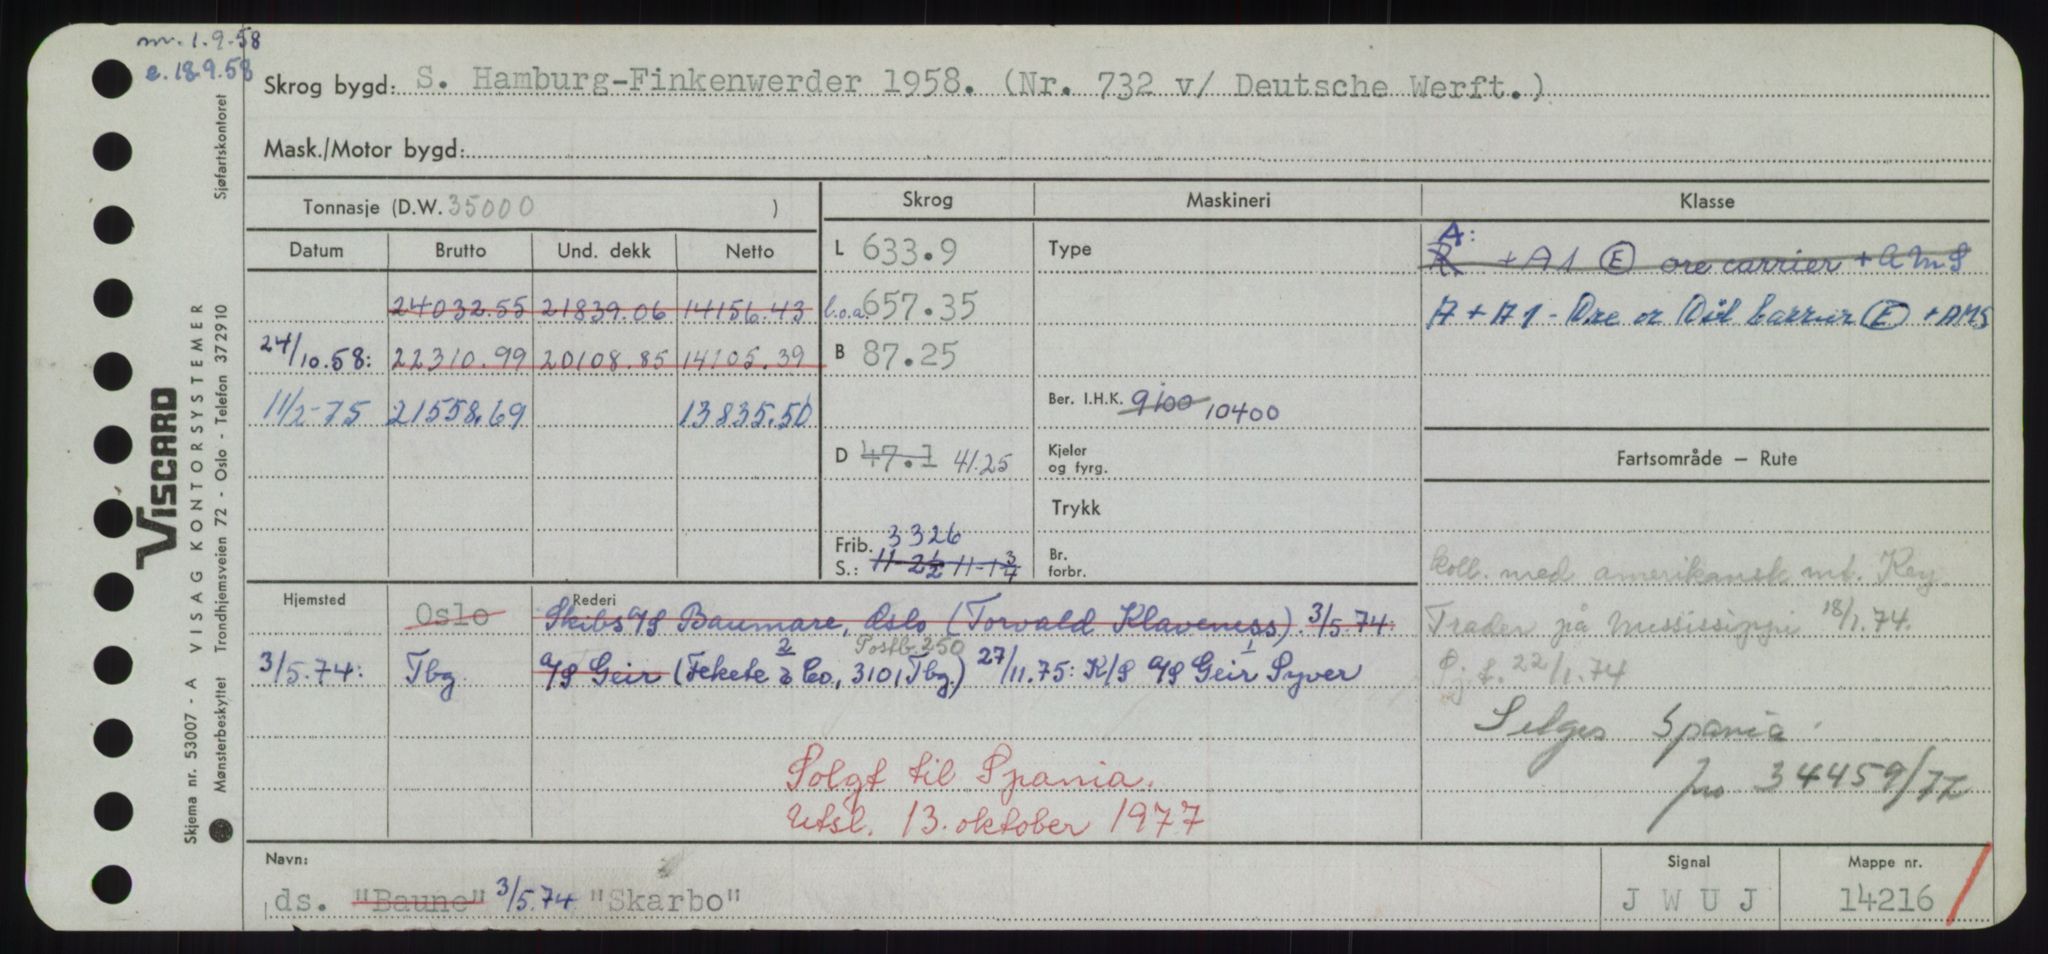 m. 1.9.58
e. 18.9.58
Skrog bygd: S. Hamburg-Finkenwerder 1958. (Nr. 732 v/ Deutsche Werft.)
Mask./Motor bygd:
Tonnasje (D.W. 35000 )
Skrog Maskineri Klasse
Datum Brutto Und. dekk Netto
L 633.9
Type
A:
R +A1 (E) ore carrier + AMS
24032.55 21839.06 14156.43
l.o.a. 657.35
A + A1 - Ore or Oil Carrier (E) + AMS
24/10.58: 22310.99 20108.85 14105.39
B 87.25
11/2-75 21558.69 13835.50
Ber. I.H.K. 9100 10400
D 47.1 41.25
Kjeler og fyrg.
Fartsområde — Rute
Trykk
Frib. 3326
S.: 11-2½ 11-1¾
Br. forbr.
Koll. med amerikansk mt. Key
Trader på Mississippi 18/1.74.
Sj.f. 22/1.74
Selges Spania
jno 34459/77
Hjemsted Rederi
Oslo Skibs A/S Baumare, Oslo (Torvald Klaveness). 3/5.74.
Postb. 250
3/5.74: Tbg. A/S Geir (Fekete & Co., 3101 Tbg.) 27/11.75: K/S A/S Geir Syver
2 1
Solgt til Spania.
Utsl. 13. oktober 1977
Navn: Signal Mappe nr.
ds. "Baune" 3/5.74 "Skarbo" J W U J 14216
VISCARD
VISAG KONTORSYSTEMER
Skjema nr. 53007 - A
Mønsterbeskyttet Trondhjemsveien 72 - Oslo - Telefon 372910 Sjøfartskontoret